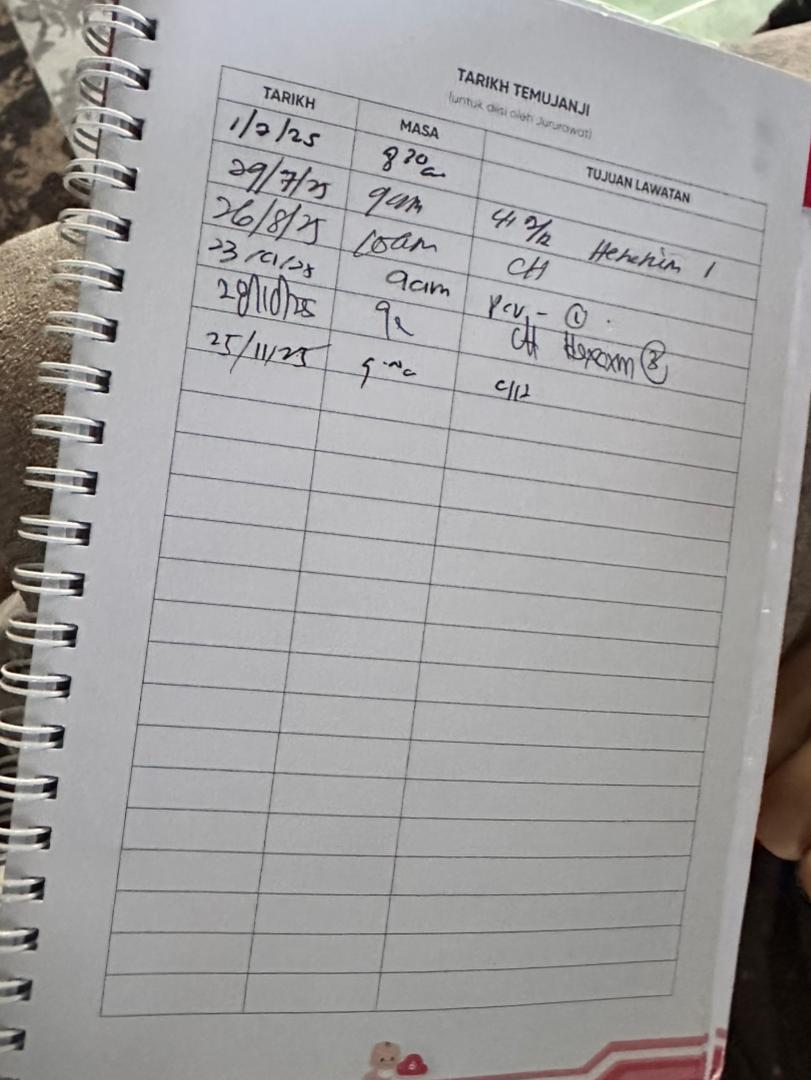 TARIKH TEMUJANJI
(untuk diisi oleh Jururawat)
TARIKH MASA TUJUAN LAWATAN
1/7/25 8 30a
29/7/25 9am 4 2/12 Hexaxim 1
26/8/25 10am CH
23/9/25 9am PCV - ①
28/10/25 9a CH Hexaxim ③
25/11/25 c/12